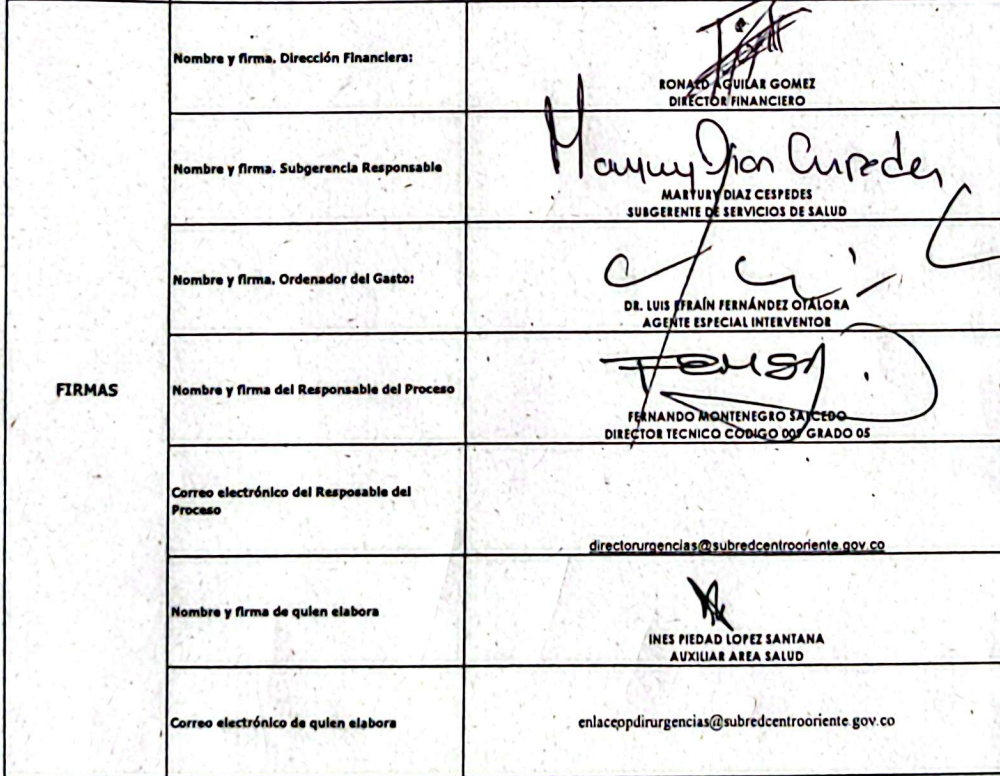 Nombre y firma. Dirección Financiera:
RONALD AGUILAR GOMEZ
DIRECTOR FINANCIERO
Nombre y firma. Subgerencia Responsable
MARYURY DIAZ CESPEDES
SUBGERENTE DE SERVICIOS DE SALUD
Nombre y firma. Ordenador del Gasto:
DR. LUIS EFRAÍN FERNÁNDEZ OTALORA
AGENTE ESPECIAL INTERVENTOR
FIRMAS
Nombre y firma del Responsable del Proceso
FERNANDO MONTENEGRO SALCEDO
DIRECTOR TECNICO CODIGO 009 GRADO 05
Correo electrónico del Resposable del
Proceso
directorurgencias@subredcentrooriente.gov.co
Nombre y firma de quien elabora
INES PIEDAD LOPEZ SANTANA
AUXILIAR AREA SALUD
Correo electrónico de quien elabora
enlaceopdirurgencias@subredcentrooriente.gov.co